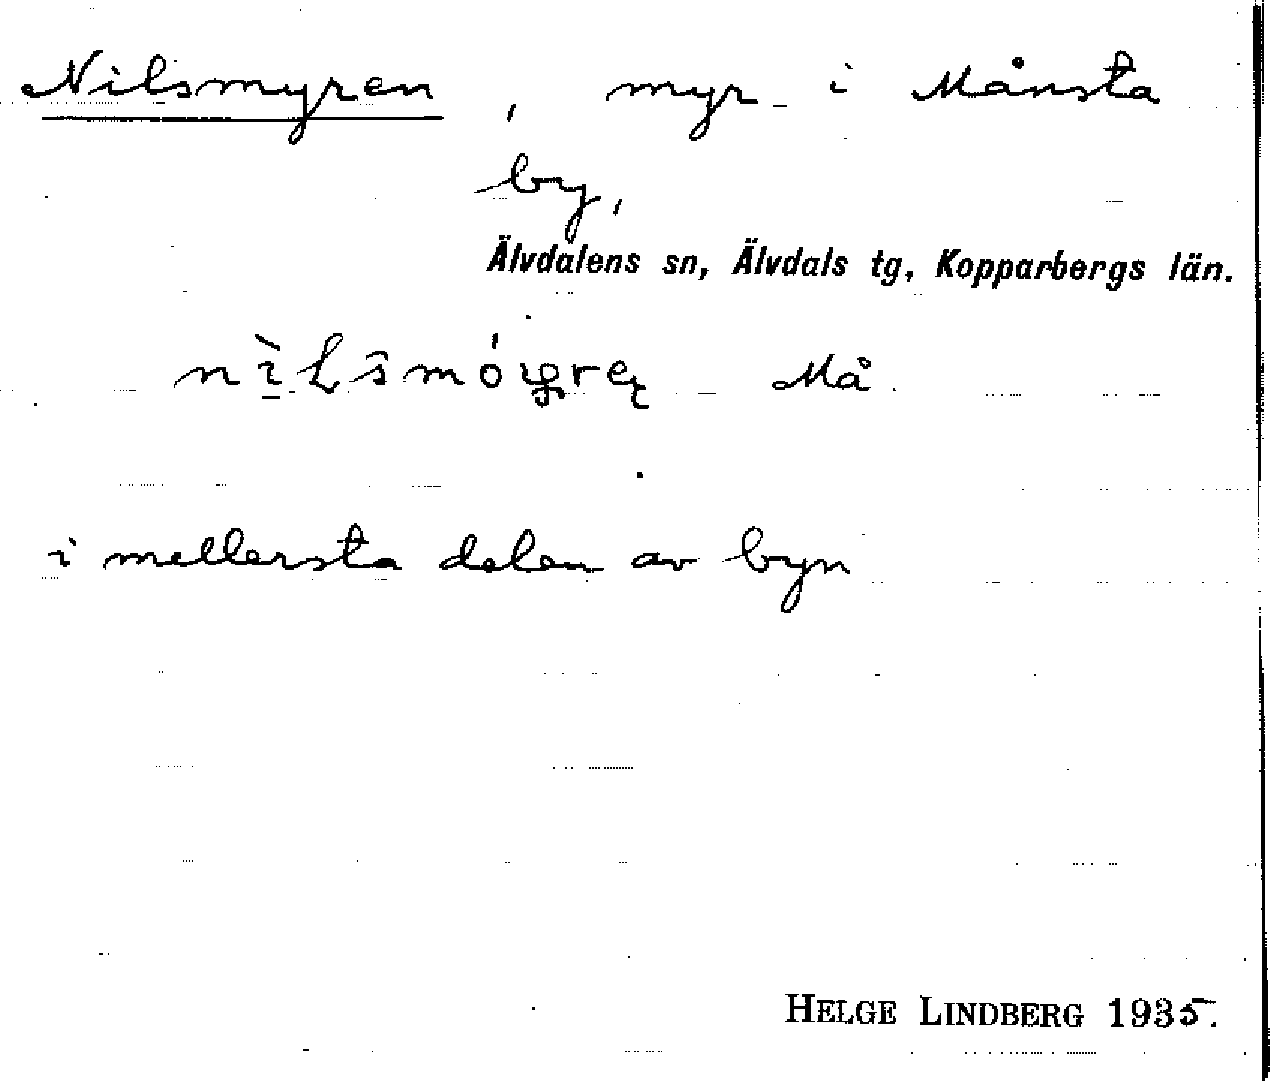 Nilsmyren, myr i Månsta
by,
Älvdalens sn, Älvdals tg, Kopparbergs län.
Må
i mellersta delen av byn
HELGE LINDBERG 1935.